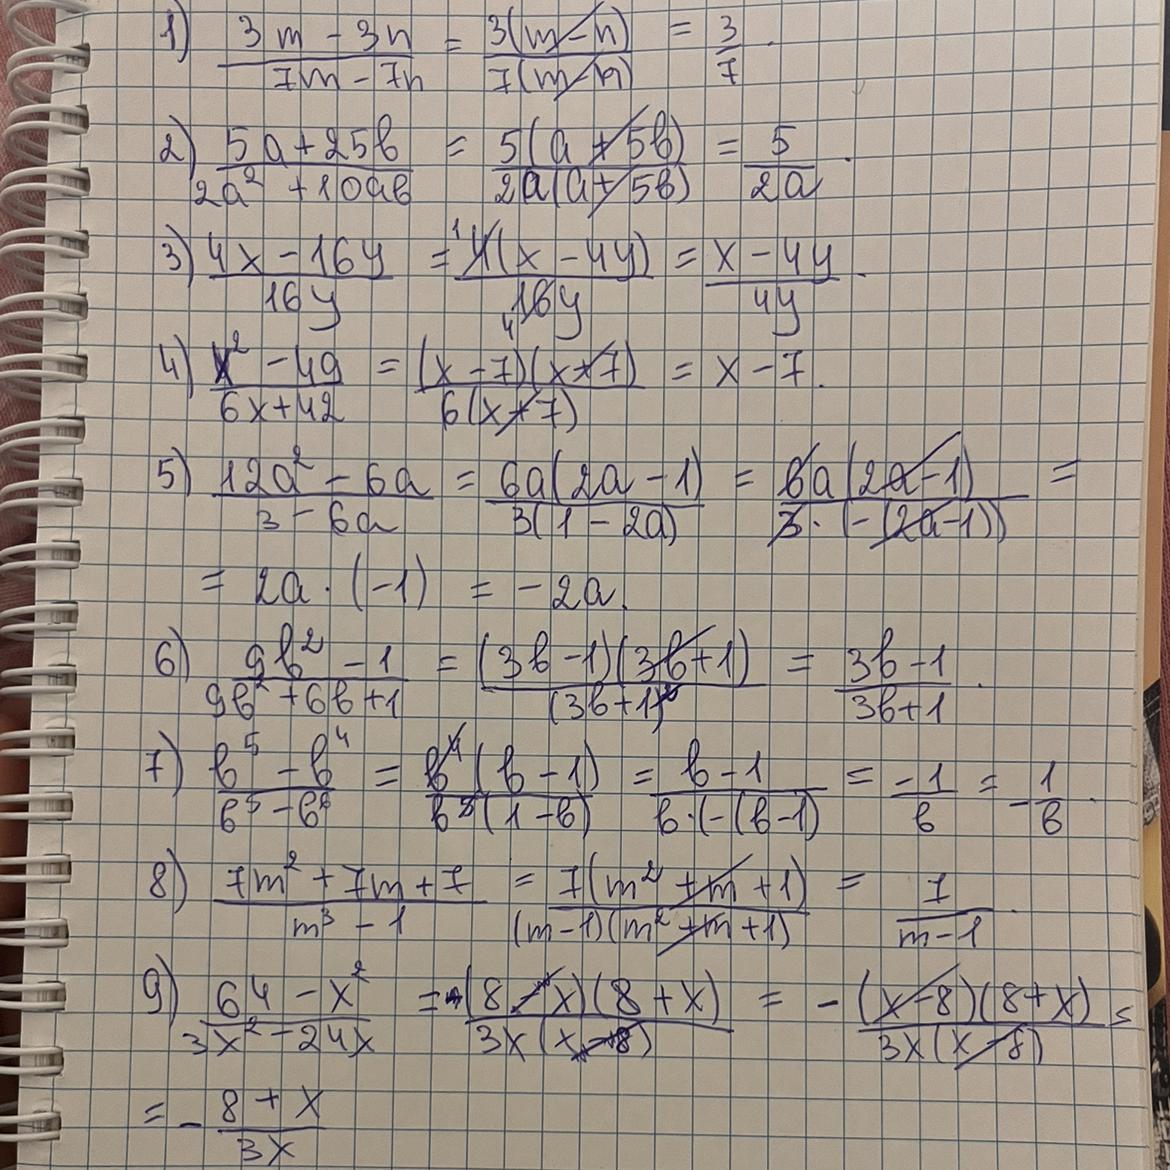 1) (3m - 3n)/(7m - 7n) = 3(m - n)/7(m - n) = 3/7.
2) (5a + 25b)/(2a² + 10ab) = 5(a + 5b)/2a(a + 5b) = 5/2a.
3) (4x - 16y)/16y = 4(x - 4y)/16y = (x - 4y)/4y.
4) (x² - 49)/(6x + 42) = (x - 7)(x + 7)/6(x + 7) = x - 7.
5) (12a² - 6a)/(3 - 6a) = 6a(2a - 1)/3(1 - 2a) = 6a(2a - 1)/3·(-(2a - 1)) =
= 2a · (-1) = -2a.
6) (9b² - 1)/(9b² + 6b + 1) = (3b - 1)(3b + 1)/(3b + 1)² = (3b - 1)/(3b + 1).
7) (b⁵ - b⁴)/(b⁵ - b⁶) = b⁴(b - 1)/b⁵(1 - b) = (b - 1)/b·(-(b - 1) = -1/b = -1/b.
8) (7m² + 7m + 7)/(m³ - 1) = 7(m² + m + 1)/(m - 1)(m² + m + 1) = 7/(m - 1).
9) (64 - x²)/(3x² - 24x) = (8 - x)(8 + x)/3x(x - 8) = - (x - 8)(8 + x)/3x(x - 8) =
= - (8 + x)/3x